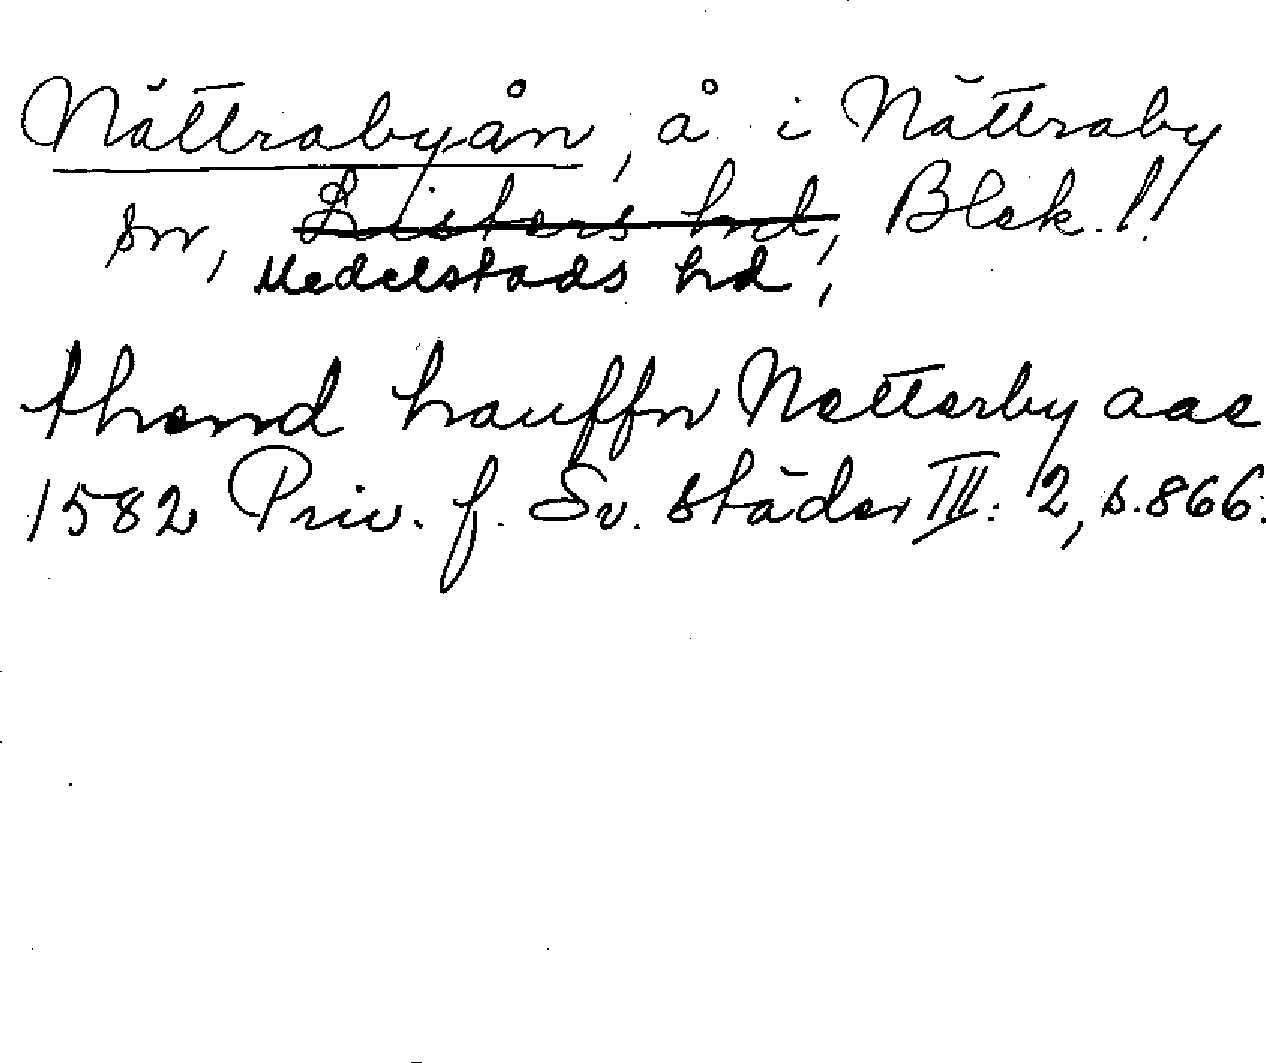 Nättrabyån, å i Nättraby
sn, Listers hd, Blek.!!
Medelstads hd,
thend hauffn Netterby aae
1582 Priv. f. Sv. städer III: 2, s. 866.